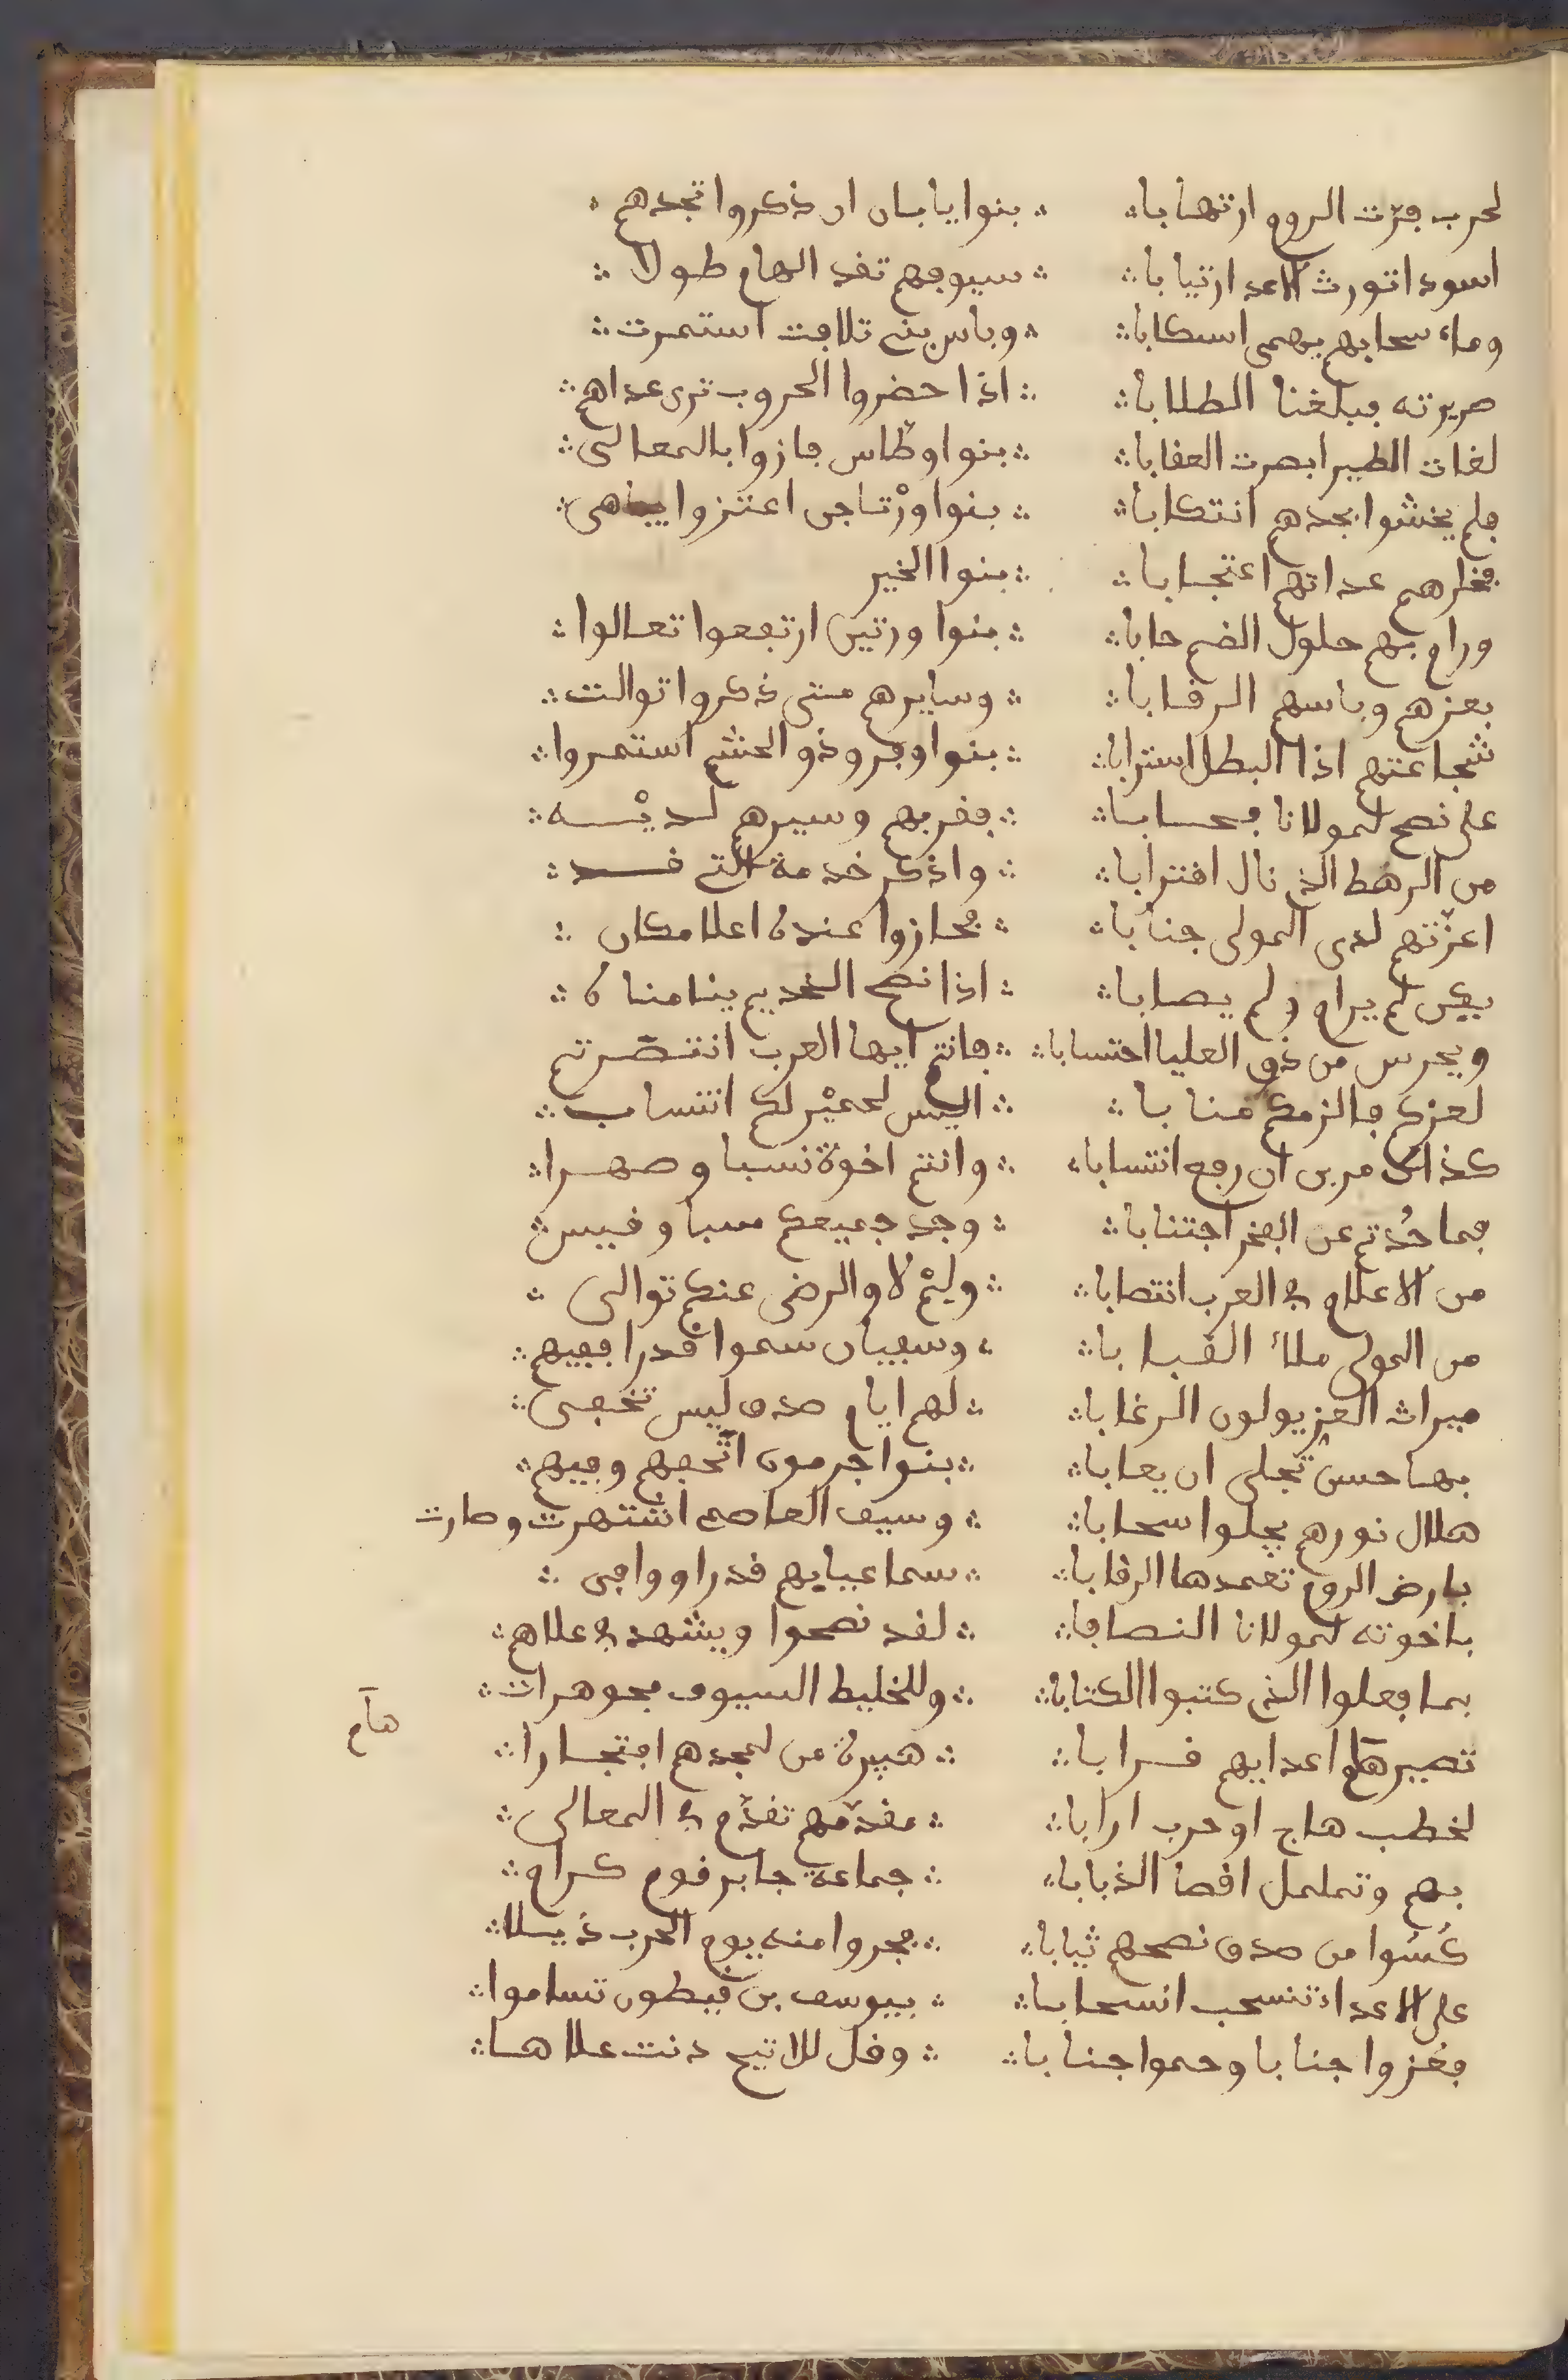 لحرب فرّت الروم ارتهابا ∴ بنوا يابان ان ذكروا تجدهم
اسودا تورث الاعدا ارتيابا ∴ سيوفهم تقد الهام طولا ∴
وماء سحابهم يهمى اسكابا ∴ وباس بنى تلافت استمرت ∴
مريرته فبلغنا الطلابا ∴ اذا حضروا الحروب ترى عداهم ∴
لغات الطير ابصرت العقابا ∴ بنوا وطّاس فازوا بالمعالى ∴
فلم يخشوا بجدهم انتكابا ∴ بنوا ورْتاجن اعتزوا يباهى ∴
فخارهم عداتهم اعتجابا ∴ بنوا الخير
ورام بهم حلول الضيم حابا ∴ بنوا ورتين ارتفعوا تعالوا ∴
بعزهم وباسهم الرقابا ∴ وسايرهم متى ذكروا توالت ∴
شجاعتهم اذا البطل استرابا ∴ بنوا وفر وذو الحشم استمروا ∴
على نصح لمولانا فحسابا ∴ بقربهم وسيرهم لديْه ∴
من الرهط الذى نال اقترابا ∴ واذكر خدمة التى قد ∴
اعزّتهم لدى المولى جنابا ∴ فحازوا عنده اعلا مكان ∴
يكن لم يرام ولم يصابا ∴ اذا نصح الخديم ينا مناه ∴
ويحرس من ذوى العليا احتسابا ∴ فانتم ايها العرب انتصرتم
لعزكم فالزمكم منابا ∴ اليس لحميْر لكم انتساب ∴
كذاك مرين ان رفع انتسابا ∴ وانتم اخوة نسبا وصهرا ∴
فما حُدتم عن الفخر اجتنابا ∴ وجد جميعكم سبا وقيس ∴
من الاعلام فى العرب انتصابا ∴ ولِمْ لا والرضى عنكم توالى ∴
من المولى ملأ القبابا ∴ وسفيان سموا قدرا ففيهم ∴
ميراث العز يولون الرغابا ∴ لهم ايام صدق ليس تخفى ∴
بها حسن تجلى ان يعابا ∴ بنوا جرمون اتحفهم وفيهم ∴
هلال نورهم يجلوا سحابا ∴ وسيف العاصم اشتهرت وصارت
بارض الروم تغمدها الرقابا ∴ سما عيايهم قدرا ووافى ∴
باخوته لمولانا النصابا ∴ لقد نصحوا ويشهد فى علاهم ∴
بما فعلوا الذى كتبوا الكتابا ∴ وللخليط السيوف مجوهرات ∴
تصير هام اعدايهم قرابا ∴ هبيرة من لمجدهم افتخارا ∴
هام
لخطب هاج او حرب ارابا ∴ مقدّمهم تقدّم فى المعالى ∴
بهم وتململ اقصا الذبابا ∴ جماعة جابر قوم كرام ∴
كُسُوا من صدق نصحهم ثيابا ∴ فجروا منه يوم الحرب ذيلا ∴
على الاعداد تنسحب انسحابا ∴ بيوسف بن قيطون تساموا ∴
فعزوا جنابا وحموا جنابا ∴ وقل للاثبج دنت علاها ∴